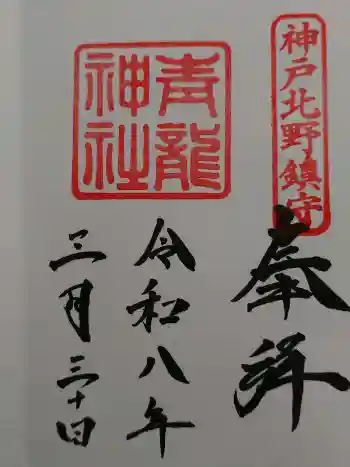 神戸北野鎮守
奉拝
青龍神社
令和八年
三月三十日